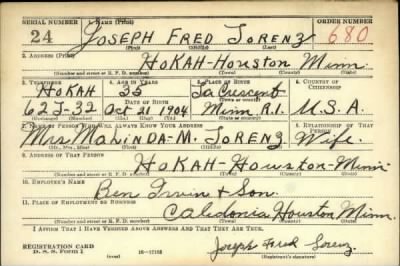 SERIAL NUMBER 1. NAME (Print) ORDER NUMBER
24 JOSEPH FRED LORENZ 680
(First) (Middle) (Last)
2. ADDRESS (Print)
HOKAH-HOUSTON MINN.
(Number and street or R. F. D. number) (Town) (County) (State)
3. TELEPHONE 4. AGE IN YEARS 5. PLACE OF BIRTH 6. COUNTRY OF CITIZENSHIP
HOKAH 35 LaCrescent
(Town or county)
62J-32 DATE OF BIRTH Oct 21 1904 Minn R.1. U.S.A.
(State or country)
7. NAME OF PERSON WHO WILL ALWAYS KNOW YOUR ADDRESS 8. RELATIONSHIP OF THAT PERSON
Mrs. MALINDA-M. LORENZ Wife
(Mr., Mrs., Miss) (First) (Middle) (Last)
9. ADDRESS OF THAT PERSON
HOKAH-HOUSTON-MINN
(Number and street or R. F. D. number) (Town) (County) (State)
10. EMPLOYER'S NAME
Ben Irvin & Son.
11. PLACE OF EMPLOYMENT OR BUSINESS
Caledonia Houston Minn.
(Number and street or R. F. D. number) (Town) (County) (State)
I AFFIRM THAT I HAVE VERIFIED ABOVE ANSWERS AND THAT THEY ARE TRUE.
REGISTRATION CARD
D. S. S. Form 1
Joseph Fred Lorenz
(Registrant's signature)